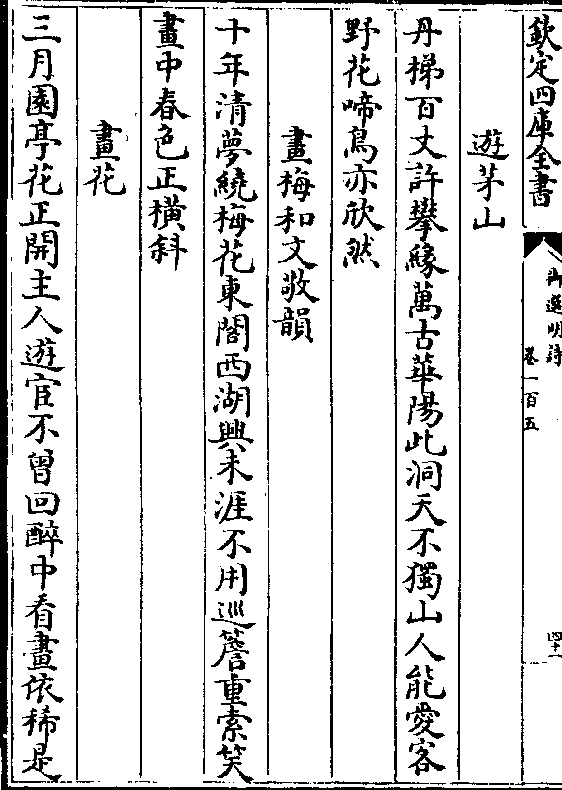 欽定四庫全書
御選明詩
卷一百五
四十一
遊茅山
丹梯百丈許攀緣萬古華陽此洞天不獨山人能愛客
野花啼鳥亦欣然
畫梅和文敬韻
十年清夢繞梅花東閣西湖興未涯不用巡簷重索笑
畫中春色正橫斜
畫花
三月園亭花正開主人遊宦不曾回醉中看畫依稀是